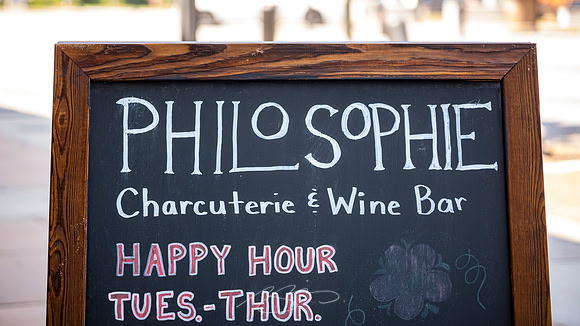 PHILOSOPHIE
Charcuterie & Wine Bar
HAPPY HOUR
TUES.-THUR.